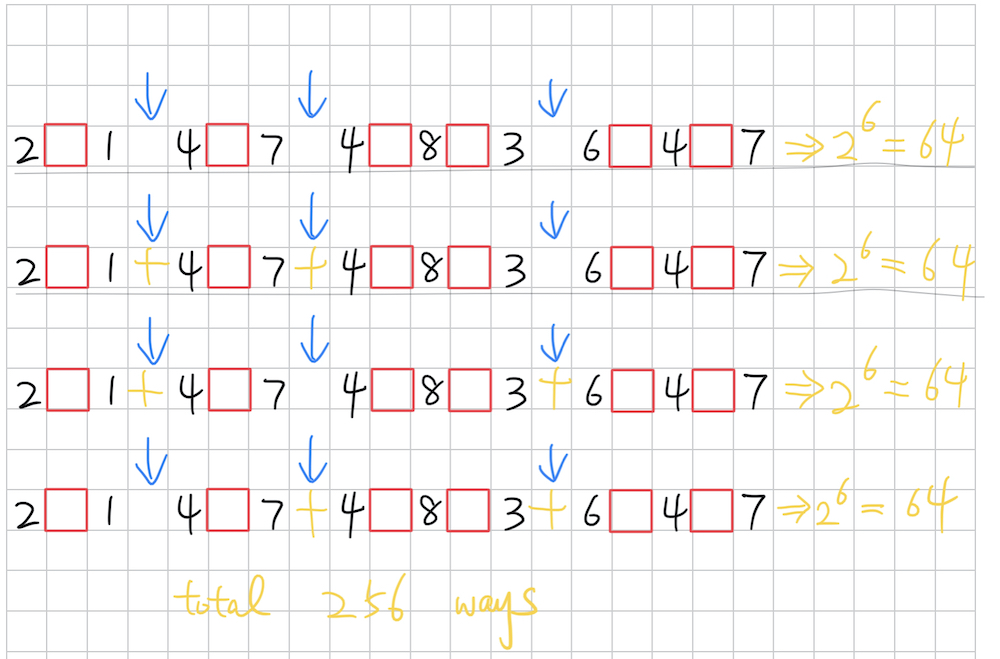 2 □ 1 4 □ 7 4 □ 8 □ 3 6 □ 4 □ 7 ⇒ 2⁶ = 64
2 □ 1 + 4 □ 7 + 4 □ 8 □ 3 6 □ 4 □ 7 ⇒ 2⁶ = 64
2 □ 1 + 4 □ 7 4 □ 8 □ 3 + 6 □ 4 □ 7 ⇒ 2⁶ = 64
2 □ 1 4 □ 7 + 4 □ 8 □ 3 + 6 □ 4 □ 7 ⇒ 2⁶ = 64
total 256 ways